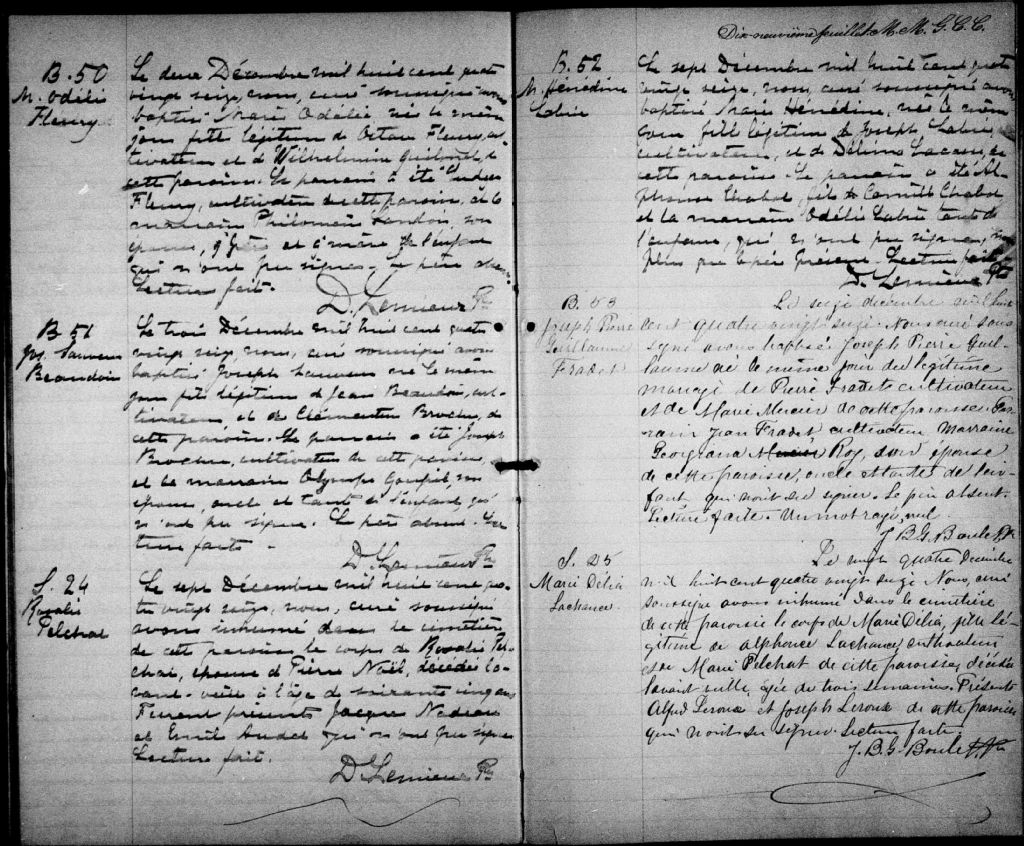 B. 50
M. Odélie
Fleury
Le deux Décembre mil huit cent quatre
vingt seize, nous, curé soussigné avons
baptisé Marie Odélie, née le même
jour fille légitime de Octave Fleury, cul
tivateur et d Wilhelmine Guilmet, de
cette paroisse. Le parrain a été
Fleury, cultivateur de cette paroisse, et la
marraine Philomène son
épouse, et de l'enfant
qui n'ont pu signer. Le père absent.
Lecture faite.
D. Lemieux Ptr
B. 51
Js. Sauveur
Beaudoin
Le trois Décembre mil huit cent quatre
vingt seize, nous, curé soussigné avons
baptisé Joseph Sauveur né le même
jour fils légitime de Jean Beaudoin, cul
tivateur, et de Clémentine Brochu, de
cette paroisse. Le parrain a été Joseph
Brochu, cultivateur de cette paroisse,
et la marraine Olympe Goupil, son
épouse, oncle et tante de l'enfant, qui
n'ont pu signer. Le père absent. Lec
ture faite.
D. Lemieux Ptr
S. 24
Rosalie
Pelchat
Le sept Décembre mil huit cent qua
tre vingt seize, nous, curé soussigné
avons inhumé dans le cimetière
de cette paroisse le corps de Rosalie Pel
chat, épouse de Pierre Noël, décédée l'a
vant-veille à l'âge de soixante cinq ans
Furent présents Jacques Nadeau
et Audet qui n'ont pu signer
Lecture faite.
D. Lemieux Ptr
Dix-neuvième feuillet M. M. G. C. C.
B. 52
M. Hénédine
Labrie
Le sept Décembre mil huit cent quatre
vingt seize, nous, curé soussigné avons
baptisé Marie Hénédine, née le même
jour fille légitime de Joseph Labrie,
cultivateur, et de Délima Lacasse, de
cette paroisse. Le parrain a été Al
phonse Chabot, fils de Camille Chabot
et la marraine Odélie Labrie tante de
l'enfant, qui n'ont pu signer,
plus que le père présent. Lecture faite
D. Lemieux Ptr
B. 53
Joseph Pierre
Guillaume
Fradet
Le seize decembre mil huit
cent quatre vingt seize. Nous curé sous
signé avons baptisé Joseph Pierre Guil
laume né le même jour du légitime
mariage de Pierre Fradet cultivateur
et de Marie Mercier de cette paroisse. Par
rain Jean Fradet cultivateur Marraine
Georgiana Mercier Roy, son épouse
de cette paroisse, oncle et tante de l'en
fant qui n'ont su signer. Le père absent.
Lecture faite. Un mot rayé nul.
J. B. G. Boulet Ptr
S. 25
Marie Délia
Lachance
Le vingt quatre Décembre
mil huit cent quatre vingt seize Nous, curé
soussigné avons inhumé dans le cimetière
de cette paroisse le corps de Marie Délia, fille lé
gitime de Alphonse Lachance cultivateur
et de Marie Pelchat de cette paroisse, décédée
l'avant veille, agée de trois semaines. Présents
Alfred Leroux et Joseph Leroux de cette paroisse
qui n'ont su signer. Lecture faite
J. B. G. Boulet Ptr